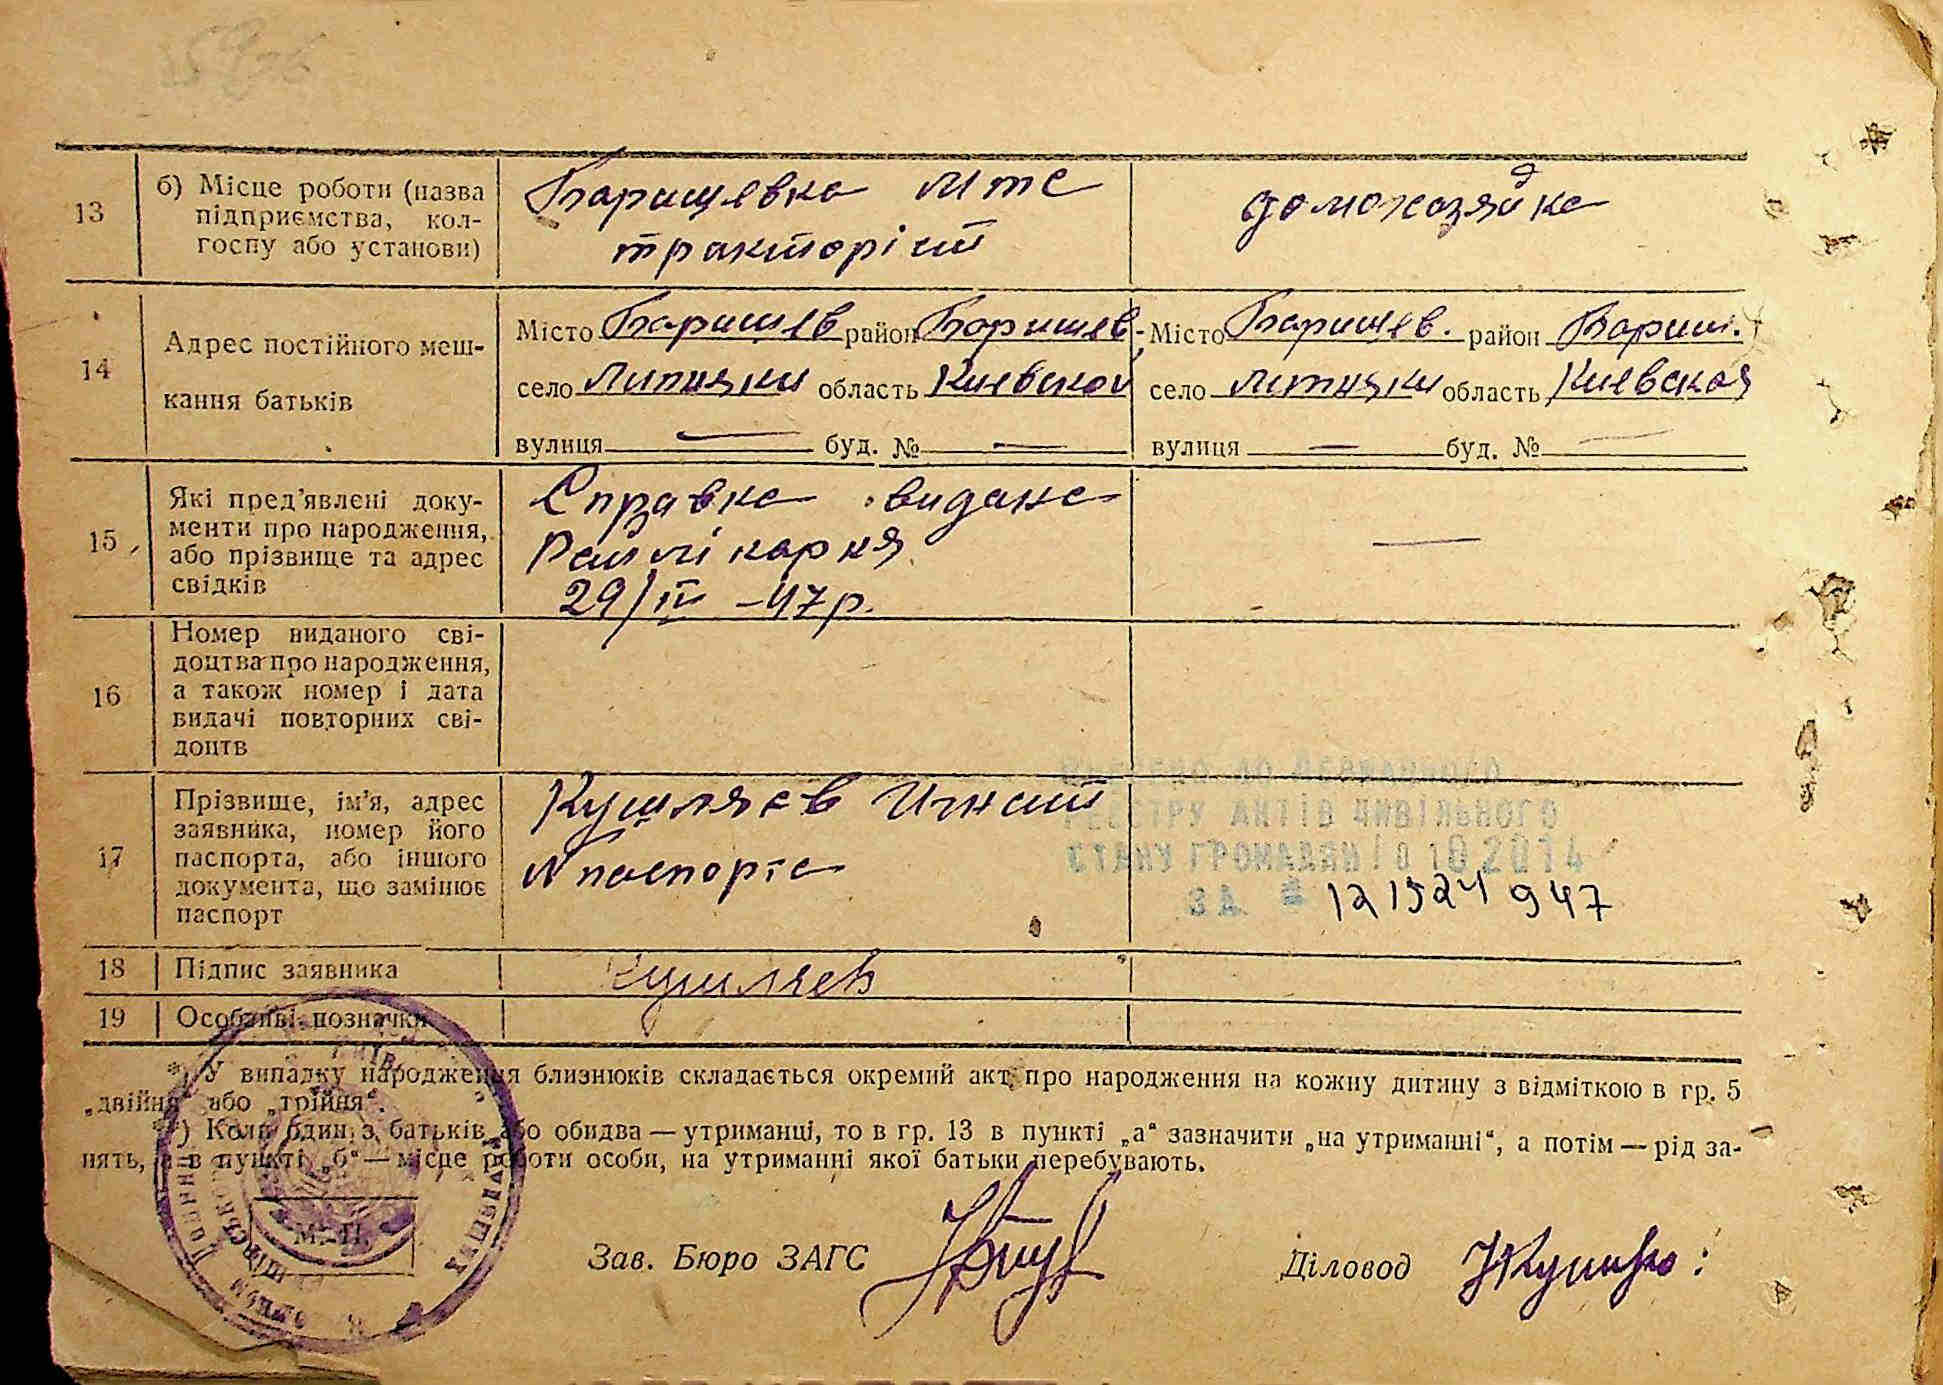 13
б) Місце роботи (назва
підприємства, кол-
госпу або установи)
Баришевка мтс
тракторіст
домохозяйка
14
Адрес постійного меш-
кання батьків
Місто Баришев район Баришев-
село Липняки область Киевской
вулиця — буд. № —
Місто Баришев. район Бариш.
село Липняки область Киевская
вулиця — буд. № —
15
Які пред'явлені доку-
менти про народження,
або прізвище та адрес
свідків
Справка видана
Райлікарня
29/IV -47р.
—
16
Номер виданого сві-
доцтва про народження,
а також номер і дата
видачі повторних сві-
доцтв
17
Прізвище, ім'я, адрес
заявника, номер його
паспорта, або іншого
документа, що замінює
паспорт
Кушляєв Игнат
N паспорта
ВНЕСЕНО ДО ДЕРЖАВНОГО
РЕЄСТРУ АКТІВ ЦИВІЛЬНОГО
СТАНУ ГРОМАДЯН 10 2014
ЗА № 12 1524 947
18
Підпис заявника
Кушляев
19
Особливі позначки
*) У випадку народження близнюків складається окремий акт про народження на кожну дитину з відміткою в гр. 5
„двійня" або „трійня".
**) Коли один з батьків або обидва — утриманці, то в гр. 13 в пункті „а" зазначити „на утриманні", а потім — рід за-
нять, а в пункті „б" — місце роботи особи, на утриманні якої батьки перебувають.
М. П.
Зав. Бюро ЗАГС
Діловод